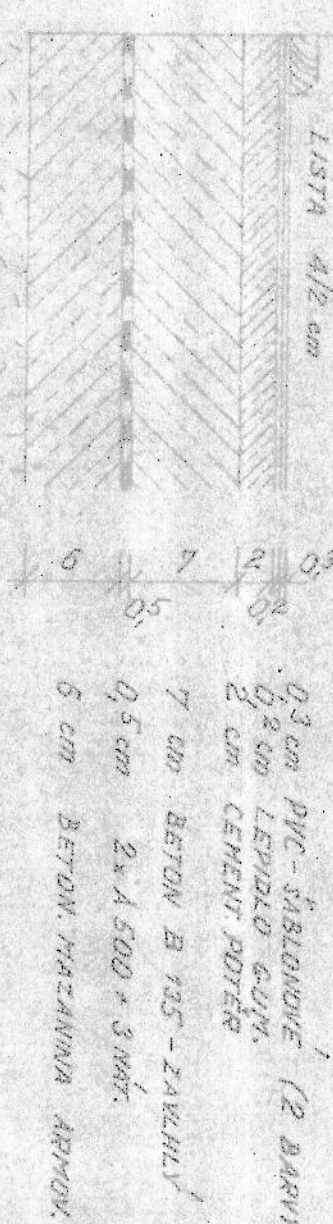 LIŠTA 4/2 cm
0,3
0,2
2
7
0,5
6
0,3 cm PVC - ŠABLONOVÉ (2 BARVY
0,2 cm LEPIDLO GUM.
2 cm CEMENT. POTĚR
7 cm BETON B 135 - ZAVLHLÝ
0,5 cm 2x A 500 + 3 NÁT.
6 cm BETON. MAZANINA ARMOV.